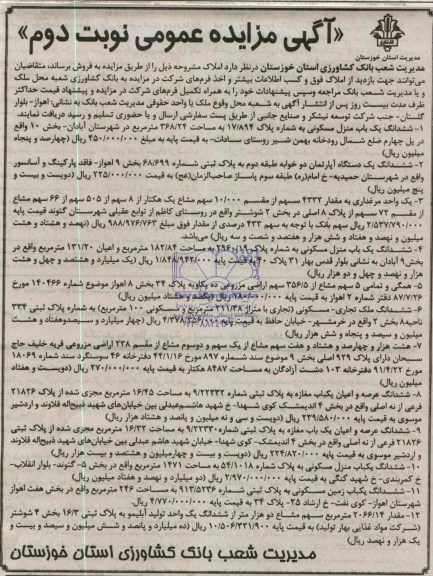 مدیریت استان خوزستان
«آگهی مزایده عمومی نوبت دوم»
مدیریت شعب بانک کشاورزی استان خوزستان درنظر دارد املاک مشروحه ذیل را از طریق مزایده به فروش برساند، متقاضیان
می‌توانند جهت بازدید از املاک فوق و کسب اطلاعات بیشتر و اخذ فرم‌های شرکت در مزایده به بانک کشاورزی شعبه محل ملک
و یا مدیریت شعب بانک مراجعه وسپس پیشنهادات خود را به همراه تکمیل فرم‌های شرکت در مزایده و پیشنهاد قیمت حداکثر
ظرف مدت بیست روز پس از انتشار آگهی به شعبه محل وقوع ملک یا واحد حقوقی مدیریت شعب بانک به نشانی: اهواز- بلوار
گلستان- جنب شرکت توسعه نیشکر و صنایع جانبی از طریق پست سفارشی ارسال و یا حضوری تسلیم و رسید دریافت نمایند.
۱- ششدانگ یک باب منزل مسکونی به شماره پلاک ۱۷/۸۹۴ به مساحت ۳۶۸/۲۴ مترمربع در شهرستان آبادان- بخش ۱۰ واقع
در پل چهارم ضلع شمال رودخانه بهمن شیر روستای سادات- به قیمت پایه به مبلغ ۴۵۰/۰۰۰/۰۰۰ ریال (چهارصد و پنجاه
میلیون ریال)
۲- ششدانگ یک دستگاه آپارتمان دو خوابه طبقه دوم به پلاک ثبتی شماره ۶۸/۶۹۹ بخش ۹ اهواز- فاقد پارکینگ و آسانسور
واقع در شهرستان حمیدیه- خ امام(ره) طبقه سوم پاساژ صاحب‌الزمان(عج) به قیمت ۲۲۵/۰۰۰/۰۰۰ ریال (دویست و بیست و
پنج میلیون ریال)
۳- یک واحد مرغداری به مقدار ۴۳۳۲ سهم از ۱۰/۰۰۰ سهم مشاع یک هکتار از ۸ سهم از ۵۰۵ سهم از ۶۶ سهم مشاع
از مقسم ۷۲ سهم از پلاک ۸ اصلی در بخش ۲ شوشتر واقع در روستای کاظم از توابع عقیلی شهرستان گتوند قیمت پایه
۲/۵۳۷/۷۹۰/۰۰۰ ریال سهم بانک با توجه به سهم ۴۳۳ درصدی از مقدار فوق مبلغ ۹۸۸/۹۷۶/۷۶۳ ریال (نهصد و هشتاد و هشت
میلیون و نهصد و هفتاد و شش هزار و هفتصد و شصت و سه ریال) می‌باشد.
۴- ششدانگ یک باب منزل مسکونی به شماره پلاک به مساحت ۱۸۲/۸۴ مترمربع و اعیانی ۱۳۱/۲۰ مترمربع واقع در
بخش ۹ آبادان به نشانی بلوار قدس بهار ۳۱ پلاک ۴۰ ۱/۸۴۸/۹۴۲/۰۰۰ ریال (یک میلیارد و هشتصد و چهل و هشت
هزار و نهصد و چهل و دو هزار ریال)
۵- همگی و تمامی ۵ سهم مشاع از ۳۵۶/۵ سهم اراضی مزروعی ده بکاویه پلاک ۳۴ بخش ۸ اهواز موضوع شماره ۱۴۰۴۶۶ مورخ
۸۷/۷/۲۶ دفتر شماره ۲ اهواز به قیمت پایه ریال
۶- ششدانگ ملک تجاری- مسکونی (تجاری با متراژ ۲۱۱/۳۸ مترمربع و مسکونی ۱۰۰ مترمربع) به شماره پلاک ثبتی ۳۳۴
ناحیه ۸ بخش ۲ واقع در خرمشهر- خیابان حافظ به قیمت ریال (چهار میلیارد و سیصدوهفتاد و هشت
میلیون و سیصد و پنجاه و شش هزار ریال)
۷- هشت هزار و چهارصد و هشتاد و هفت سهم مشاع از یک سهم و دوسوم مشاع از مقسم ۲۳۸ اراضی مزروعی قریه خلیف حاج
سبحان دارای پلاک ۹۲۹ اصلی بخش ۹ موضوع سند شماره ۸۹۷ مورخ ۴۴/۱/۱۶ دفترخانه ۴۶ سوسنگرد سند شماره ۱۸۰۶۹
مورخ ۹۱/۴/۲۲ دفترخانه ۱۰۳ دشت آزادگان به مساحت ۸۴۸۷ هکتار به قیمت پایه ۲۷۰/۰۰۰/۰۰۰ ریال (دویست و هفتاد
میلیون ریال)
۸- ششدانگ عرصه و اعیان یکباب مغازه به پلاک ثبتی شماره ۹/۲۲۳۳۲ به مساحت ۱۶/۴۵ مترمربع مجزی شده از پلاک ۲۱۸۲۶
فرعی از نه اصلی واقع در بخش ۴ اندیمشک کوی شهدا- خ شهید هاشم‌عبدلی بین خیابان‌های شهید ذبیح‌اله قلاوند و اردشیر
موسوی به قیمت پایه ۲۳۹/۵۸۰/۰۰۰ ریال (دویست و سی و نه میلیون و پانصد و هشتاد هزار ریال)
۹- ششدانگ عرصه و اعیان یک باب مغازه به پلاک ثبتی شماره ۹/۲۲۲۳۰ به مساحت ۱۶/۳۲ مترمربع مجزی شده از پلاک ثبتی
۲۱۸۲۶ فرعی از نه اصلی واقع در بخش ۴ اندیمشک- کوی شهدا- خیابان شهید هاشم عبدلی بین خیابان‌های شهید ذبیح‌اله قلاوند
و اردشیر موسوی به قیمت پایه ۲۲۴/۸۲۰/۰۰۰ ریال (دویست و بیست و چهارمیلیون و هشتصد و بیست هزار ریال)
۱۰- ششدانگ یکباب منزل مسکونی به پلاک شماره ۵۴/۱۰۱۸ به مساحت ۱۴۷۱ مترمربع واقع در بخش ۵- گتوند- بلوار انقلاب-
خ کمربندی- خ شهید گنگی به قیمت پایه ۲/۹۷۰/۰۰۰/۰۰۰ ریال (دو میلیارد و نهصد و هفتاد میلیون ریال)
۱۱- ششدانگ یکباب زمین مسکونی به پلاک ثبتی شماره ۹۱۳/۵۲۳۶ به مساحت ۲۴۶ مترمربع واقع در بخش هفت اهواز
شهرستان اهواز- کوی نفت- خ ارشاد ۲۵- پلاک ۳۴ به قیمت پایه ریال
۱۲- مقدار ۲۰۶۶/۱۴ مترمربع سهم مشاع از دو هزار متر از ششدانگ یک واحد تولید آبلیمو به پلاک ثبتی ۱۶/۳ بخش ۴ شوشتر
(شرکت مواد غذایی بهار تولید) به قیمت پایه ۱۰/۵۰۶/۳۲۱/۹۰۰ ریال (ده میلیارد و پانصد و شش میلیون و سیصد و بیست و
یک هزار و نهصد ریال)
مدیریت شعب بانک کشاورزی استان خوزستان